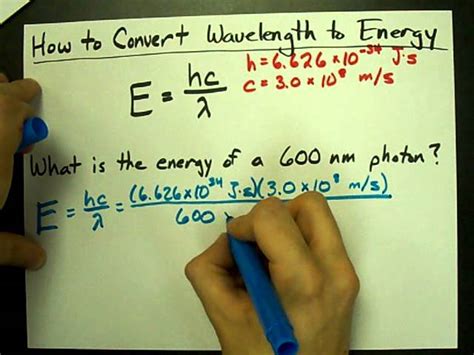 How to Convert Wavelength to Energy
E = hc/λ
h = 6.626 × 10⁻³⁴ J·s
c = 3.0 × 10⁸ m/s
What is the energy of a 600 nm photon?
E = hc/λ = (6.626×10³⁴ J·s)(3.0 × 10⁸ m/s)/600